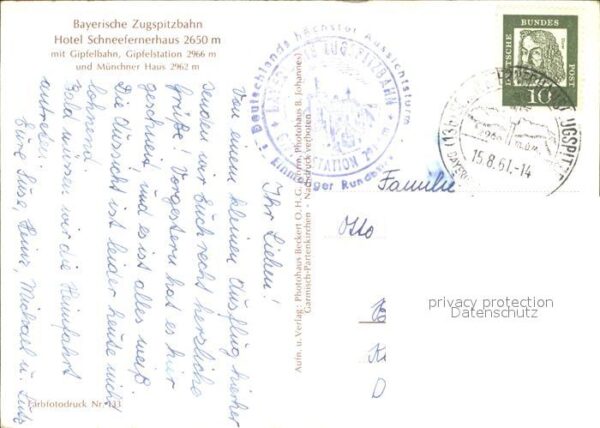 Bayerische Zugspitzbahn
Hotel Schneefernerhaus 2650 m
mit Gipfelbahn, Gipfelstation 2966 m
und Münchner Haus 2962 m
Ihr Lieben!
Von einem kleinen Ausflug hierher
senden wir Euch recht herzliche
Grüße! Vorgestern hat es hier
geschneit und es ist alles weiß.
Die Aussicht ist leider heute nicht
lohnend.
Bald müssen wir die Heimfahrt
antreten.
Eure Heinz, Michael u.
Farbfotodruck Nr. 133
Aufn. u. Verlag: Photohaus Beckert O. H. G. (Photohaus B. Johannes)
Garmisch-Partenkirchen Nachdruck verboten
Deutschlands höchster Aussichtsturm
ZUGSPITZBAHN
STATION
Einmaliger
DEUTSCHE BUNDES POST
10
15.8.61.-14
Familie
Otto
privacy protection
Datenschutz